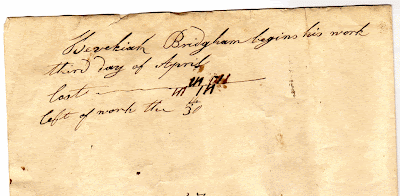 Hezekiah Bridgham begins his work
third day of April
Lost
left of work the